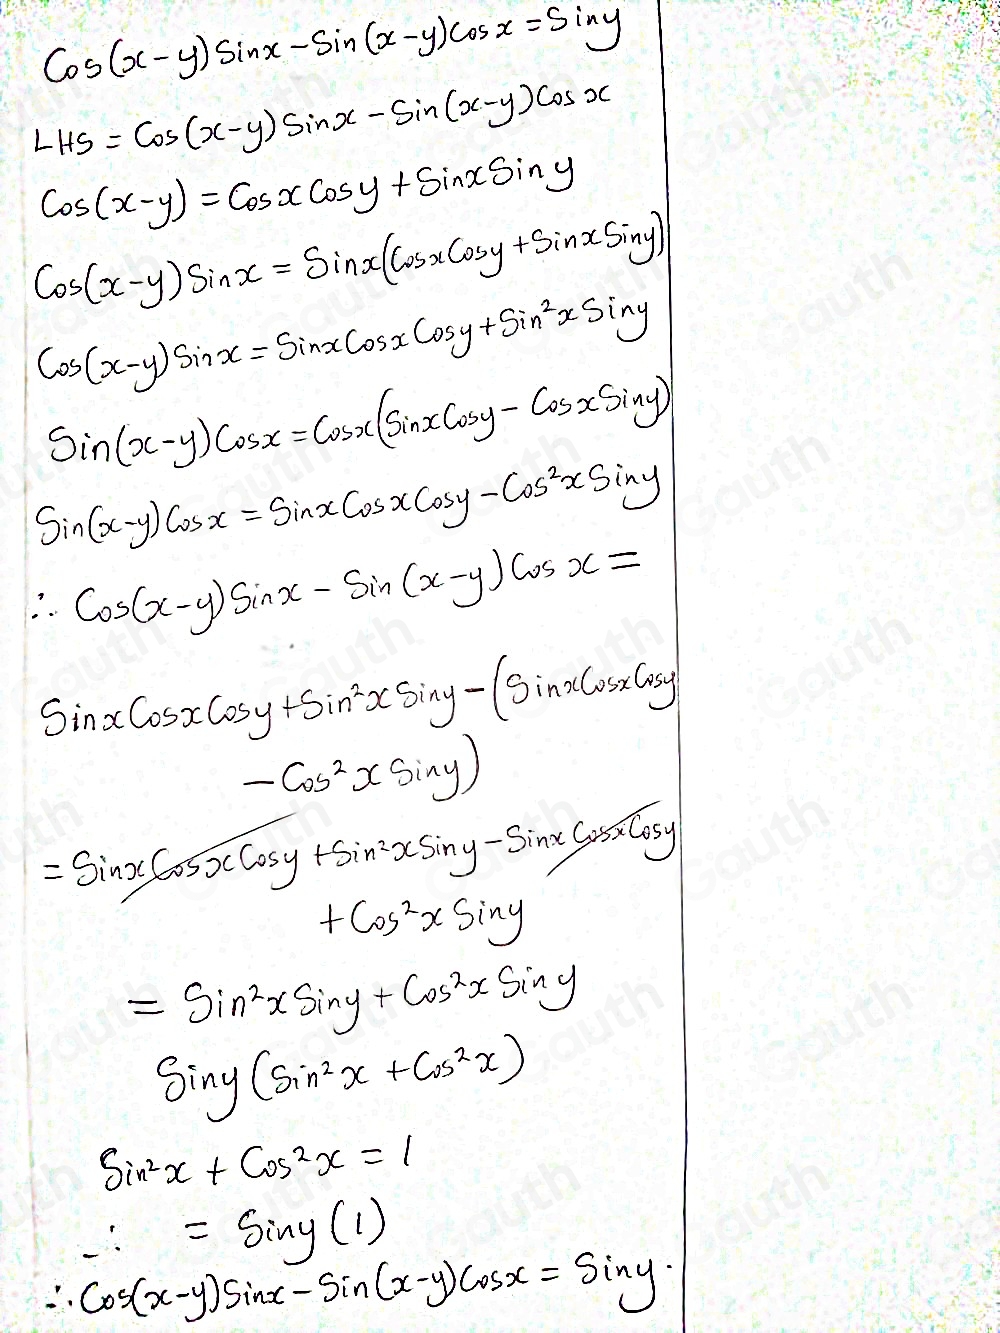 Cos(x-y)Sinx-Sin(x-y)Cosx=Siny
LHS=Cos(x-y)Sinx-Sin(x-y)Cosx
Cos(x-y)=CosxCosy+SinxSiny
Cos(x-y)Sinx=Sinx(CosxCosy+SinxSiny)
Cos(x-y)Sinx=SinxCosxCosy+Sin²xSiny
Sin(x-y)Cosx=Cosx(SinxCosy-CosxSiny)
Sin(x-y)Cosx=SinxCosxCosy-Cos²xSiny
∴ Cos(x-y)Sinx-Sin(x-y)Cosx=
SinxCosxCosy+Sin²xSiny-(SinxCosxCosy
-Cos²xSiny)
=SinxCosxCosy+Sin²xSiny-SinxCosxCosy
+Cos²xSiny
=Sin²xSiny+Cos²xSiny
Siny(Sin²x+Cos²x)
Sin²x+Cos²x=1
∴ =Siny(1)
∴Cos(x-y)Sinx-Sin(x-y)Cosx=Siny.